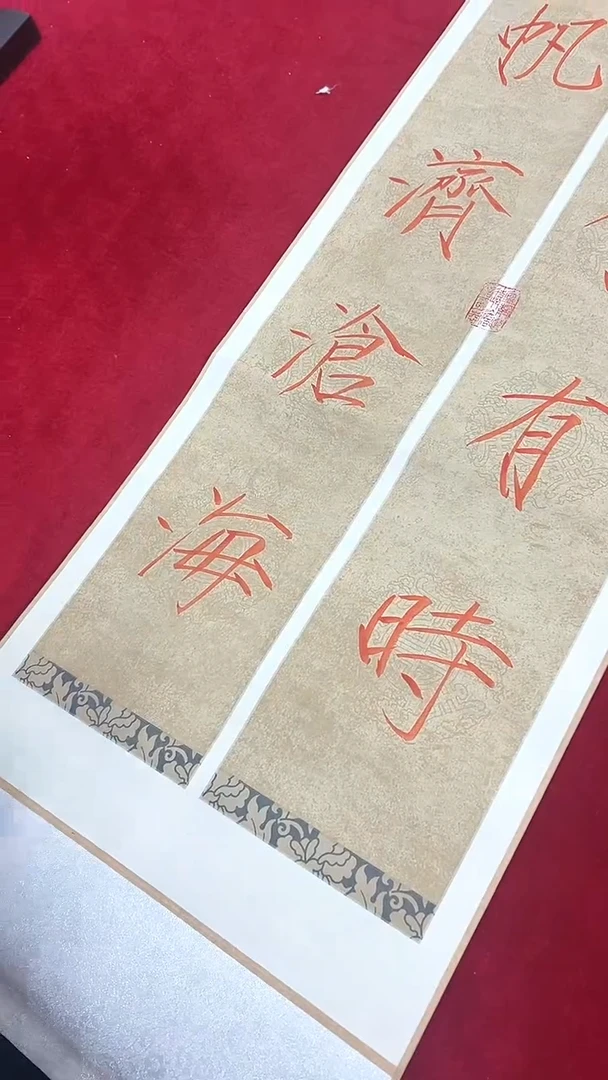 有時
帆濟滄海